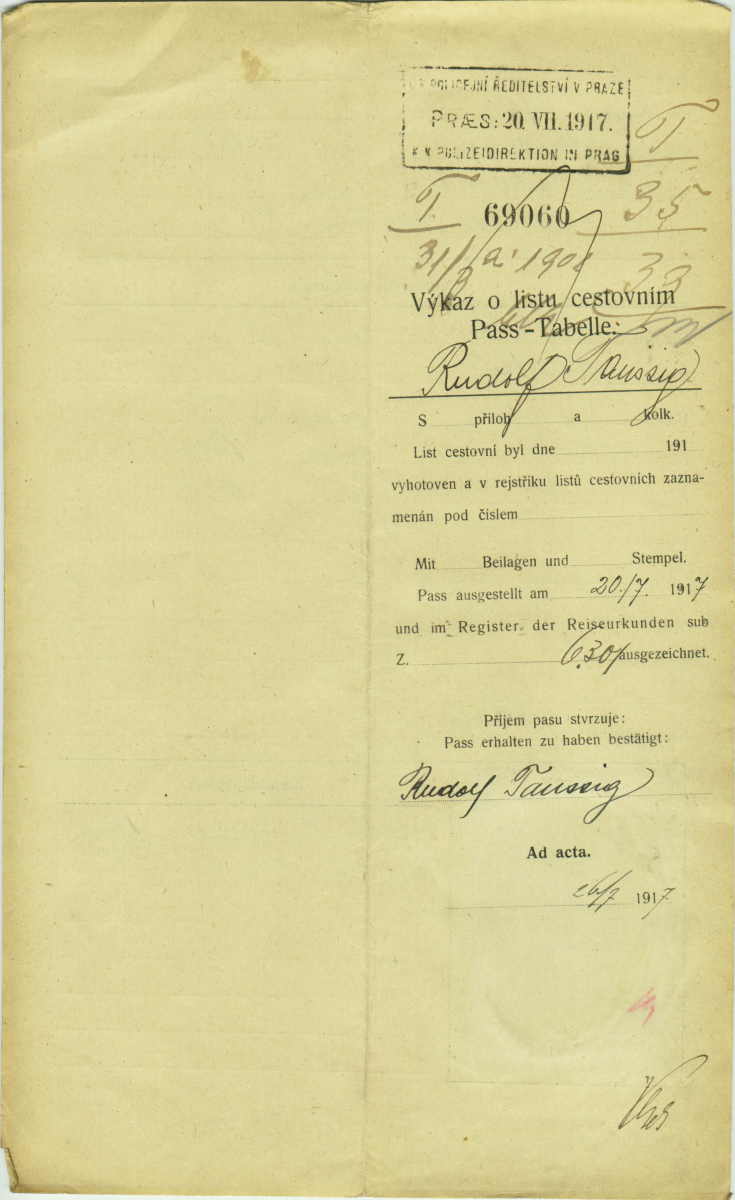 POLICEJNÍ ŘEDITELSTVÍ V PRAZE
PRÆS: 20. VII. 1917.
K. K. POLIZEIDIREKTION IN PRAG
T
T. 69060 35
31/8 1908 33
Výkaz o listu cestovním
Pass-Tabelle:
Rudolf Taussig
S příloh a kolk.
List cestovní byl dne 191
vyhotoven a v rejstříku listů cestovních zazna-
menán pod číslem
Mit Beilagen und Stempel.
Pass ausgestellt am 20./7. 1917
und im Register der Reiseurkunden sub
Z. 630/ ausgezeichnet.
Příjem pasu stvrzuje:
Pass erhalten zu haben bestätigt:
Rudolf Taussig
Ad acta.
26/7 1917